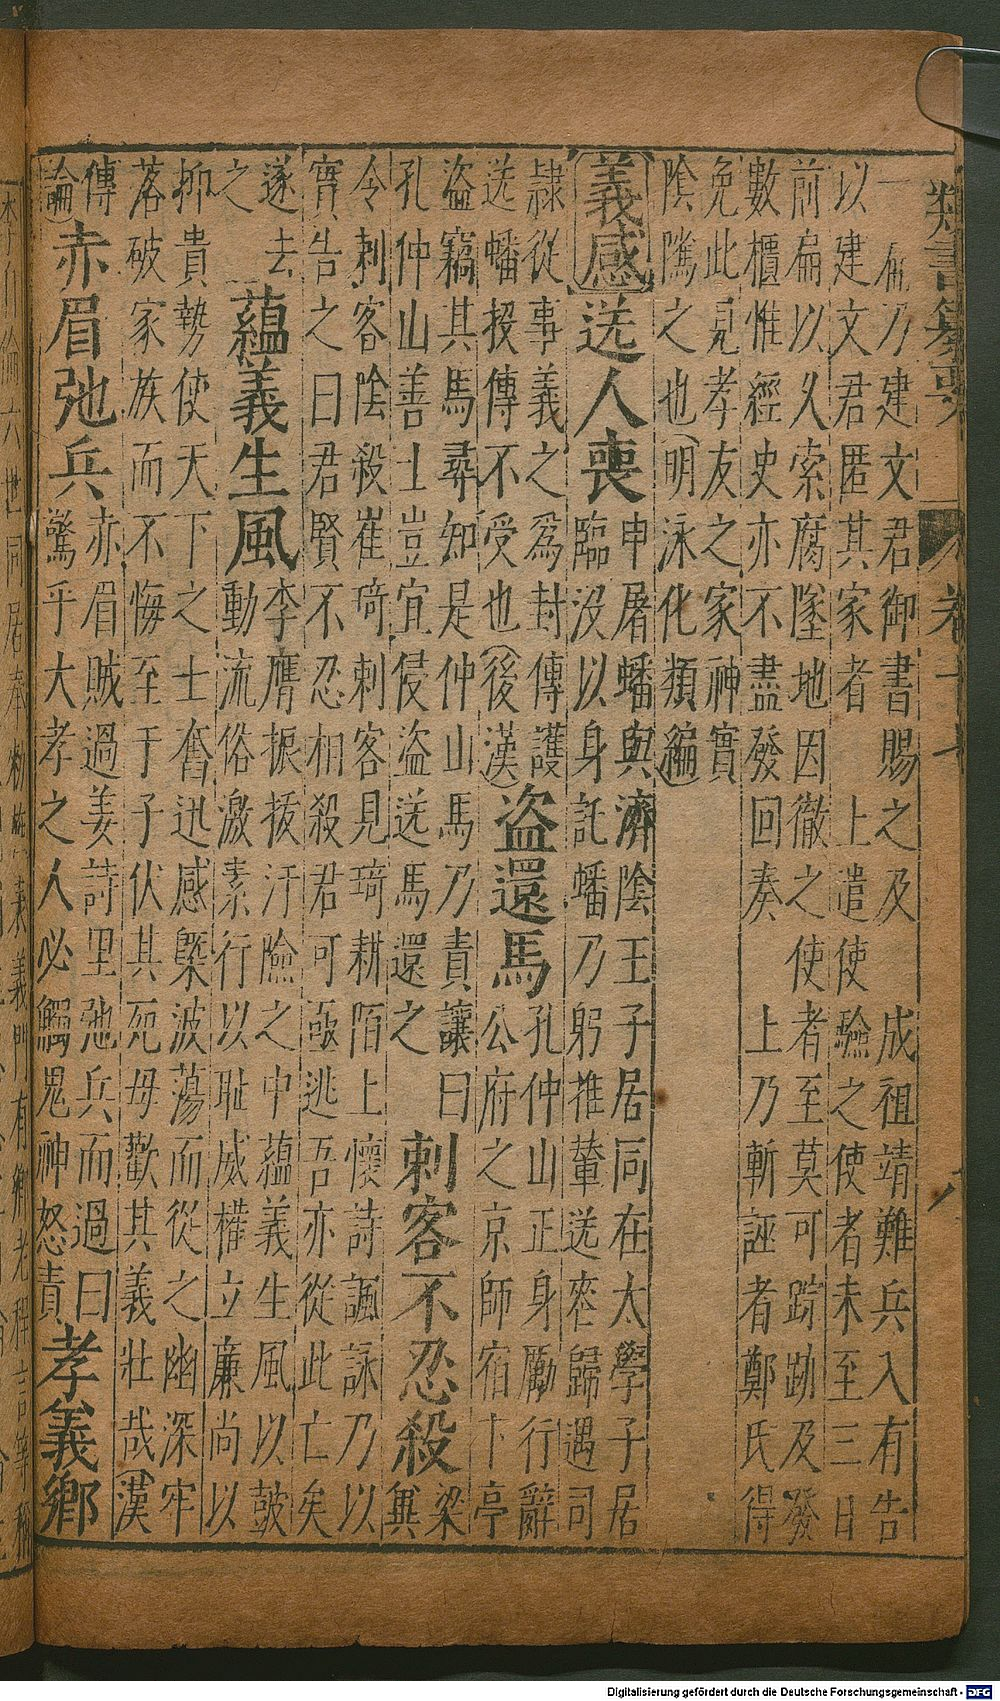 類書纂要 卷二十七 八
一扁乃建文君御書賜之及 成祖靖難兵入有告
以建文君匿其家者 上遣使驗之使者未至三日
前扁以久索腐墜地因徹之使者至莫可踪跡及發
數櫃惟經史亦不盡發回奏 上乃斬誣者鄭氏得
免此見孝友之家神實
陰騭之也(明泳化類編)
義感 送人喪
申屠蟠與濟陰王子居同在太學子居
臨沒以身託蟠乃躬推輦送喪歸遇司
隸從事義之為封傳護
送蟠投傳不受也(後漢)
盗還馬
孔仲山正身勵行辭
公府之京師宿卞亭
盗竊其馬尋知是仲山馬乃責讓曰
孔仲山善士豈宜侵盗送馬還之
刺客不忍殺
梁
兾
令刺客陰殺崔琦刺客見琦耕陌上懷詩諷詠乃以
實告之曰君賢不忍相殺君可亟逃吾亦從此亡矣
遂去
之
蘊義生風
李膺振拔汙險之中蘊義生風以鼓
動流俗激素行以恥威權立廉尚以
抑貴勢使天下之士奮迅感槩波蕩而從之幽深牢
落破家族而不悔至于子伏其死母歡其義壯哉(漢
傳
論
赤眉弛兵
赤眉賊過姜詩里弛兵而過曰
驚乎大孝之人必觸鬼神怒責
孝義鄉
Digitalisierung gefördert durch die Deutsche Forschungsgemeinschaft - DFG